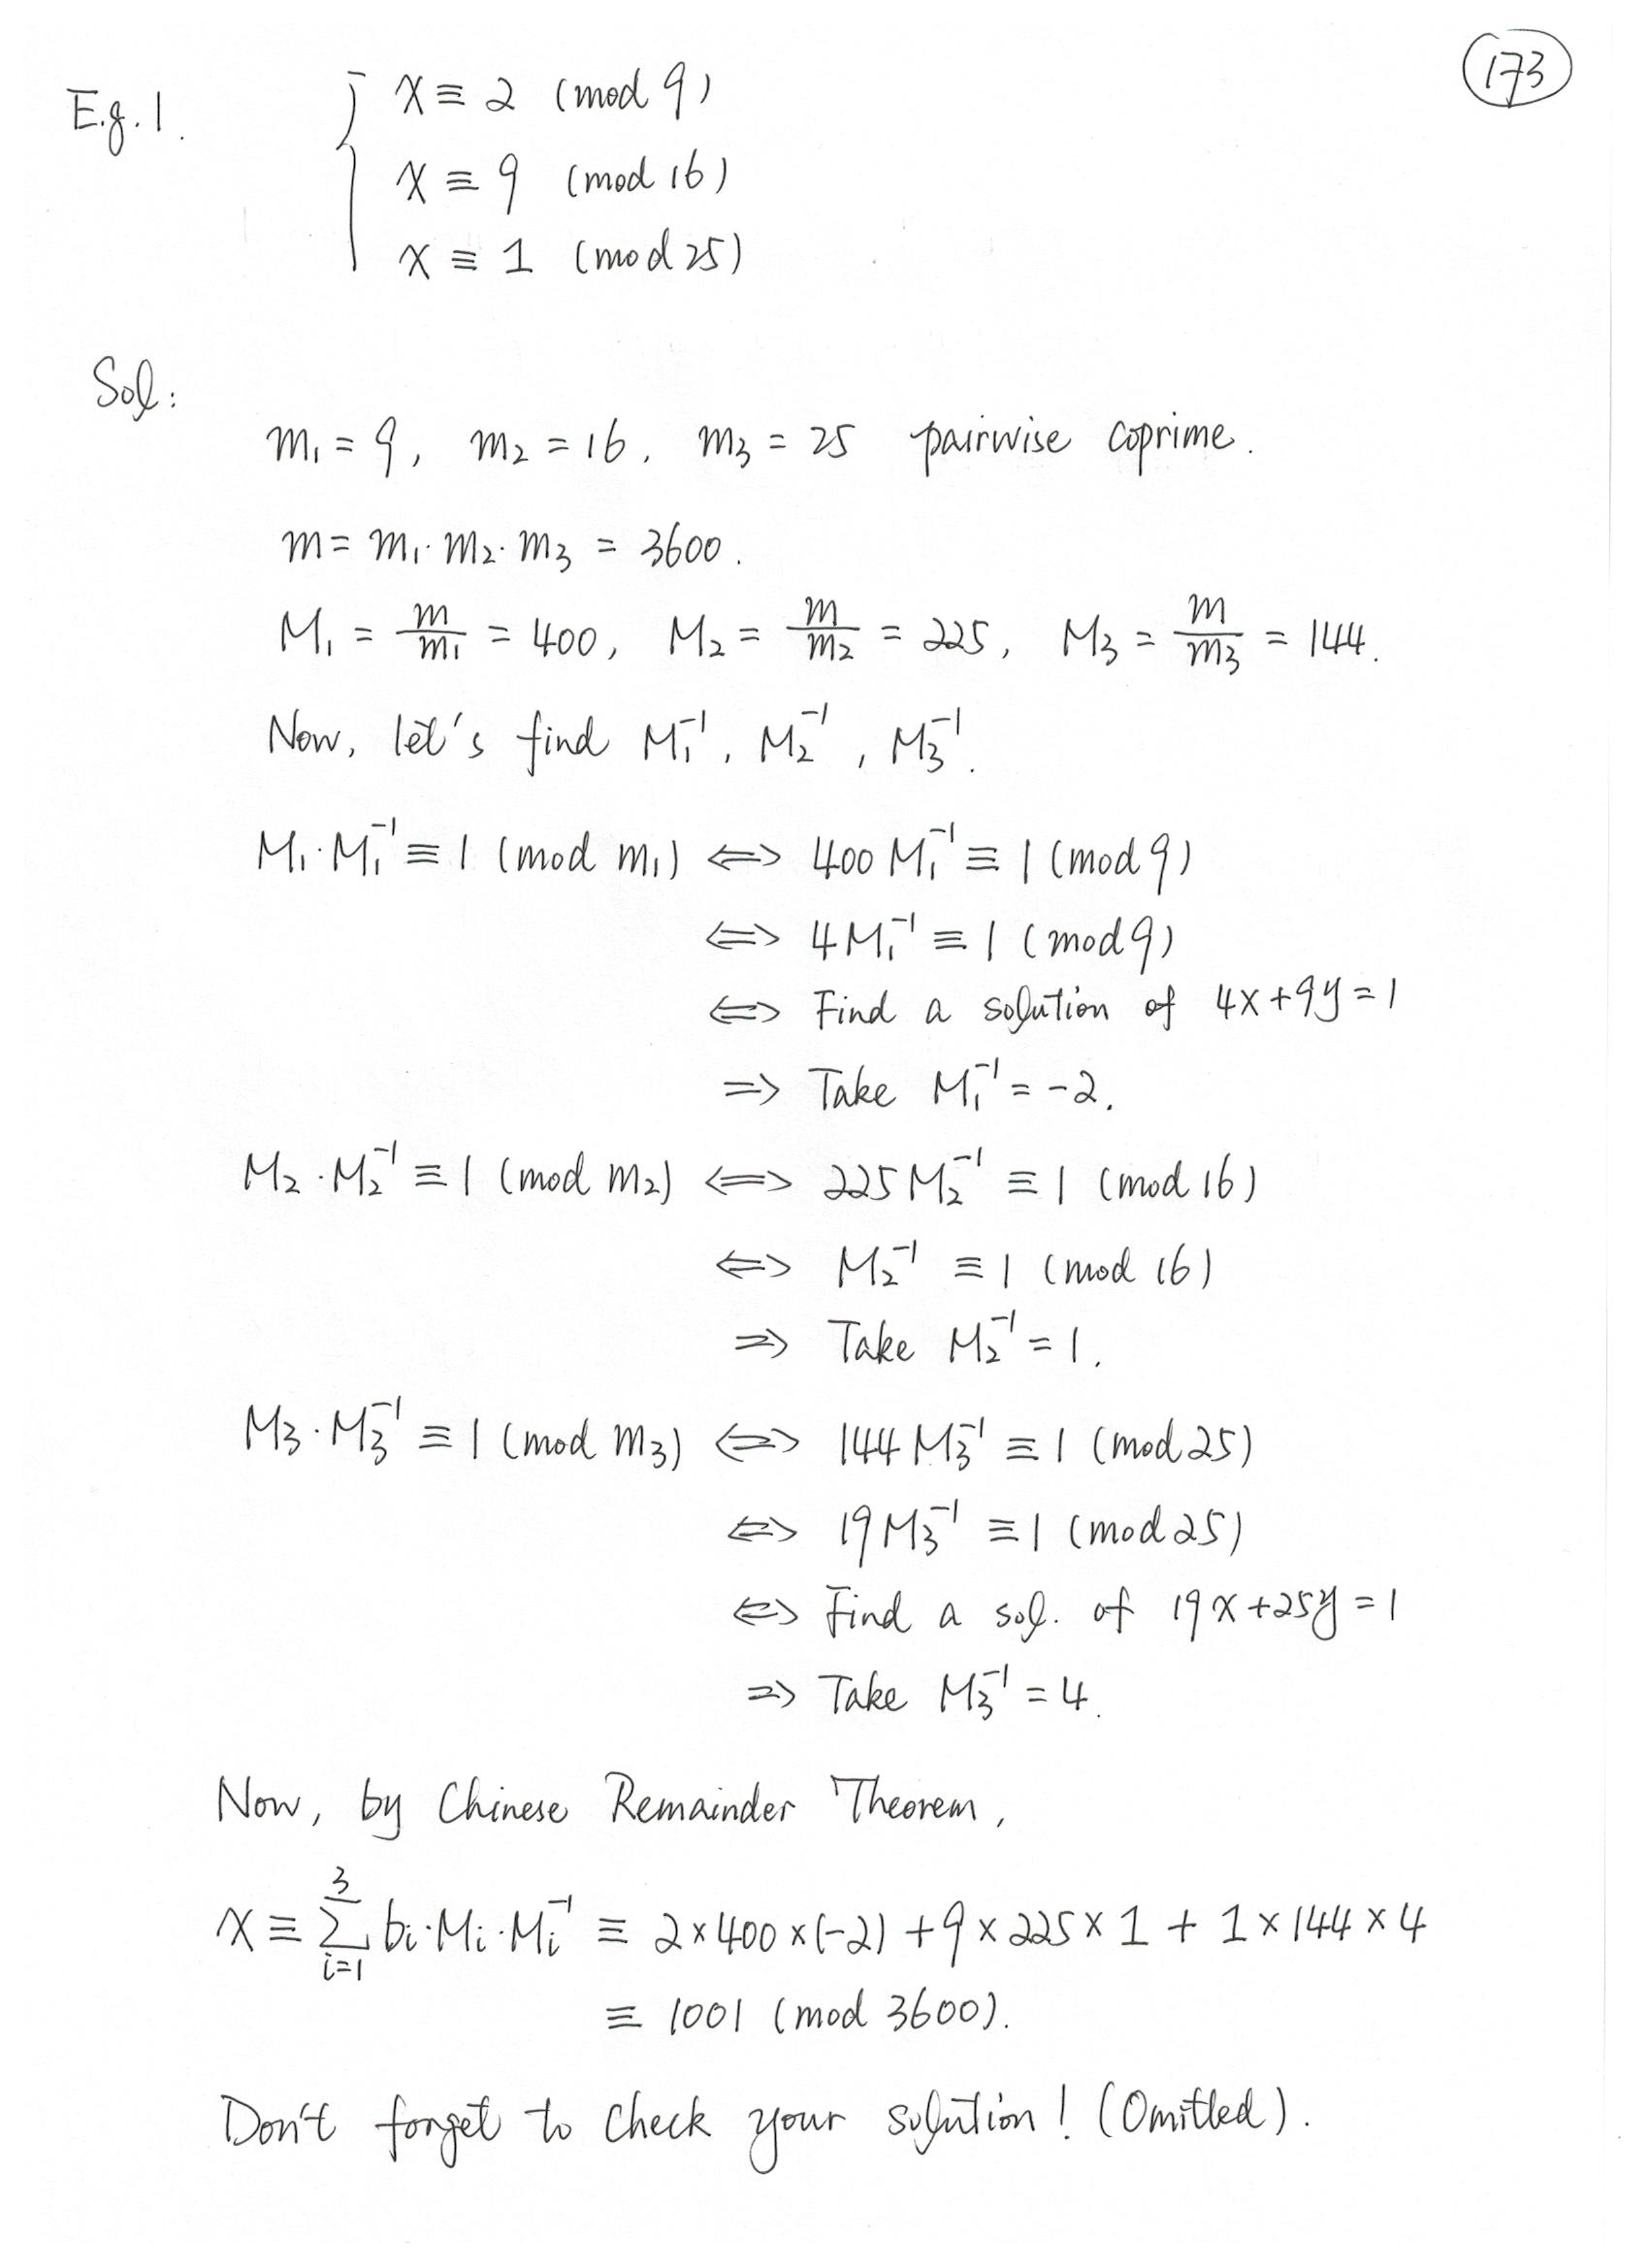 173
E.g.1. { x ≡ 2 (mod 9)
x ≡ 9 (mod 16)
x ≡ 1 (mod 25)
Sol:
m₁ = 9, m₂ = 16, m₃ = 25 pairwise coprime.
m = m₁·m₂·m₃ = 3600.
M₁ = m/m₁ = 400, M₂ = m/m₂ = 225, M₃ = m/m₃ = 144.
Now, let's find M₁⁻¹, M₂⁻¹, M₃⁻¹.
M₁·M₁⁻¹ ≡ 1 (mod m₁) ⟺ 400 M₁⁻¹ ≡ 1 (mod 9)
⟺ 4M₁⁻¹ ≡ 1 (mod 9)
⟺ Find a solution of 4x+9y=1
⟹ Take M₁⁻¹ = -2.
M₂·M₂⁻¹ ≡ 1 (mod m₂) ⟺ 225 M₂⁻¹ ≡ 1 (mod 16)
⟺ M₂⁻¹ ≡ 1 (mod 16)
⟹ Take M₂⁻¹ = 1.
M₃·M₃⁻¹ ≡ 1 (mod m₃) ⟺ 144 M₃⁻¹ ≡ 1 (mod 25)
⟺ 19M₃⁻¹ ≡ 1 (mod 25)
⟺ Find a sol. of 19x+25y=1
⟹ Take M₃⁻¹ = 4.
Now, by Chinese Remainder Theorem,
x ≡ ∑_{i=1}^{3} bᵢ·Mᵢ·Mᵢ⁻¹ ≡ 2×400×(-2) + 9×225×1 + 1×144×4
≡ 1001 (mod 3600).
Don't forget to check your solution! (Omitted).